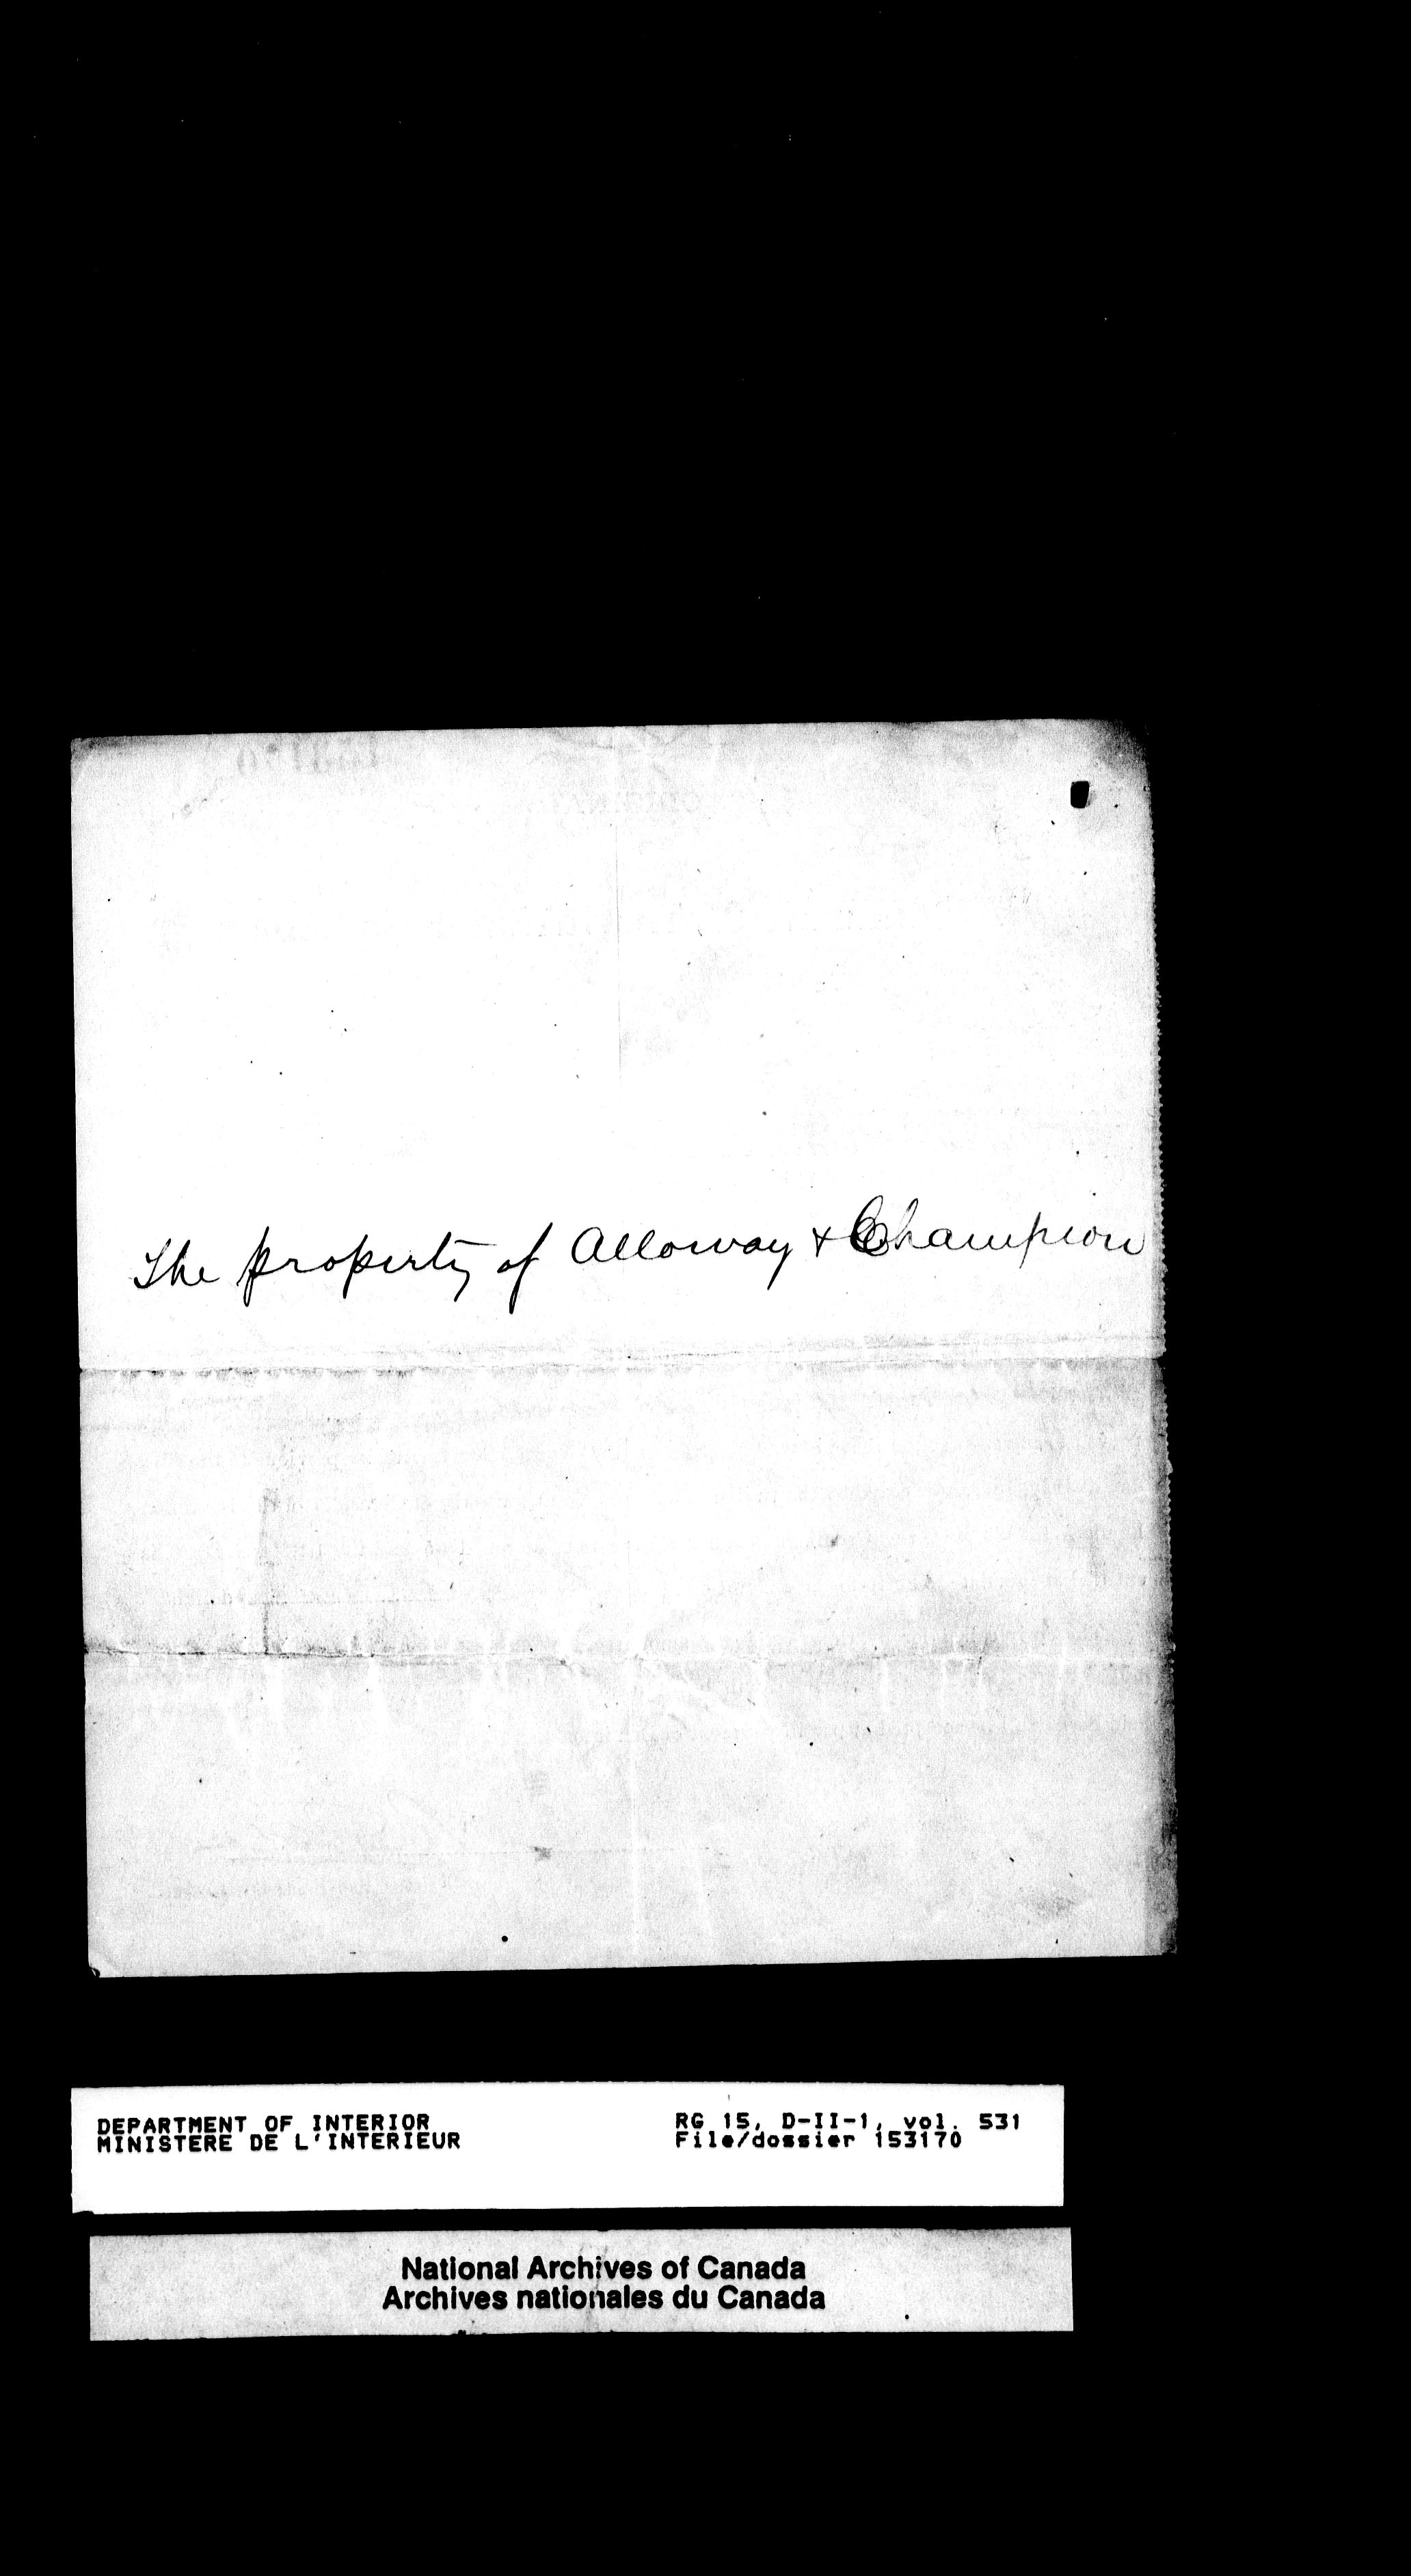 The property of Alloway + Champion
DEPARTMENT OF INTERIOR
MINISTERE DE L'INTERIEUR
RG 15, D-II-1, vol. 531
File/dossier 153170
National Archives of Canada
Archives nationales du Canada